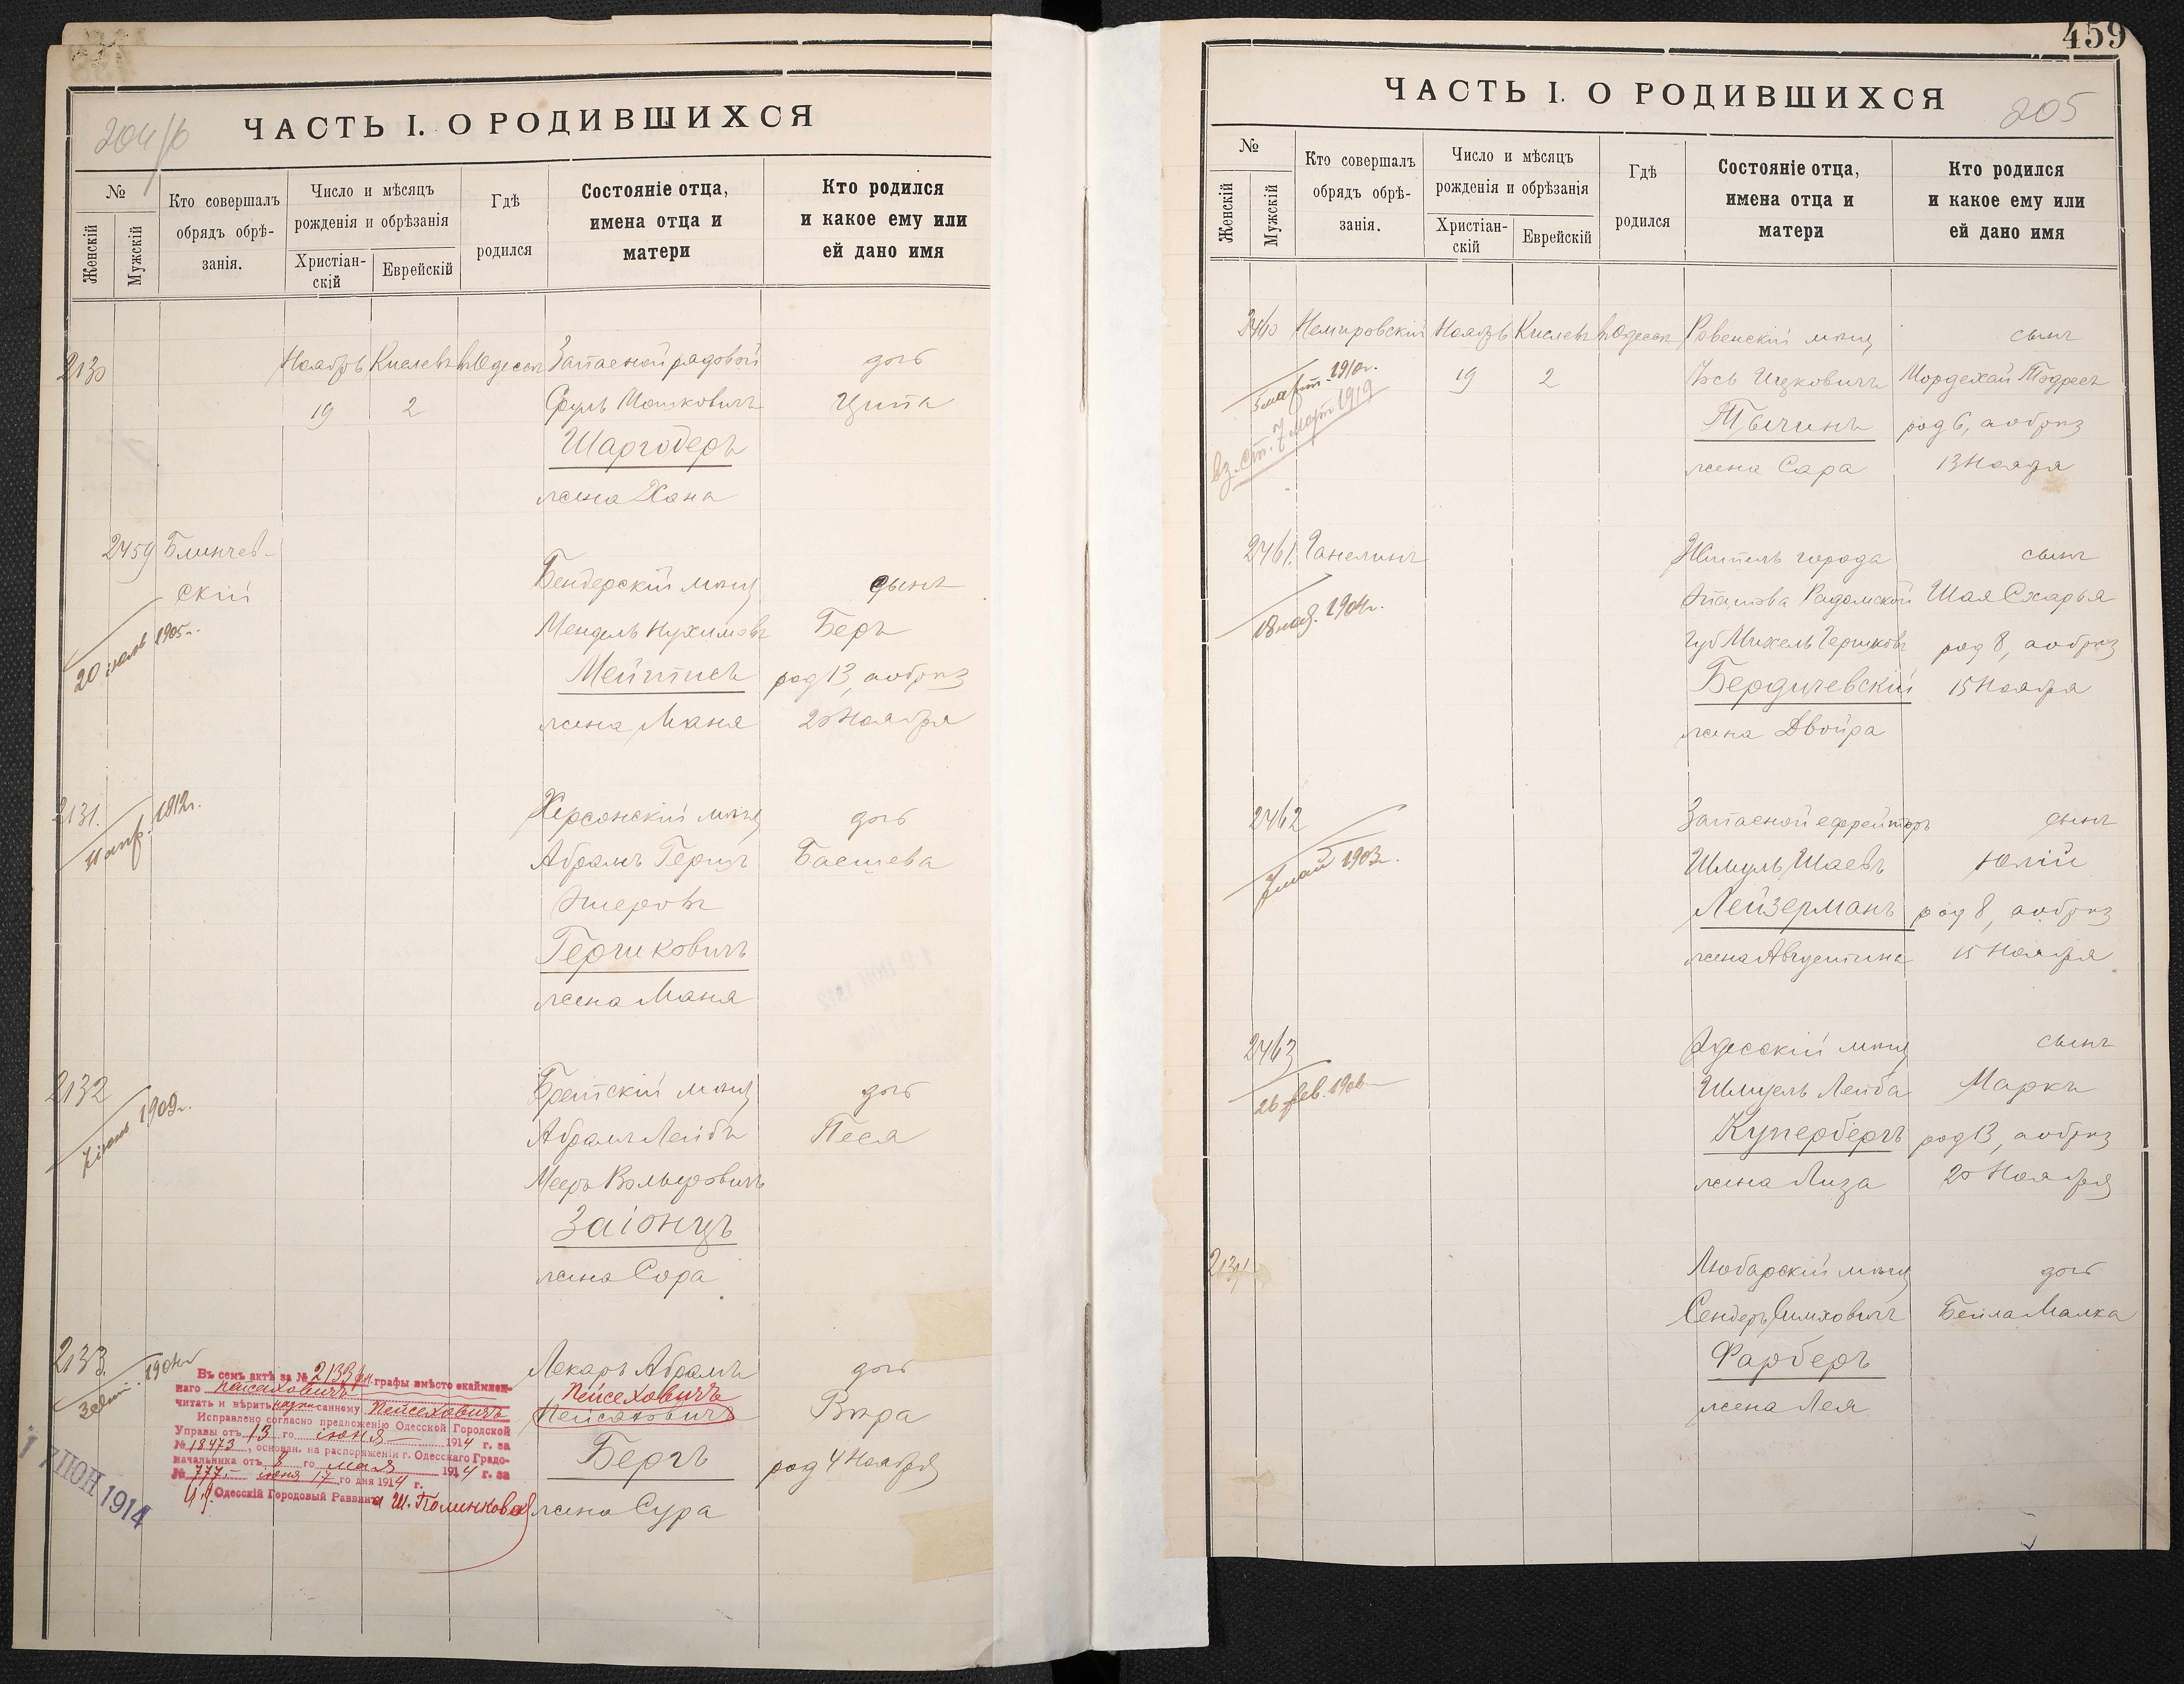 204/б
ЧАСТЬ I. О РОДИВШИХСЯ
№
Женскій
Мужскій
Кто совершалъ
обрядъ обрѣ-
занія.
Число и мѣсяцъ
рожденія и обрѣзанія
Христіан-
скій
Еврейскій
Гдѣ
родился
Состояніе отца,
имена отца и
матери
Кто родился
и какое ему или
ей дано имя
2130 Ноябрь Кислевъ въ Одессѣ Запасной рядовой дочь
19 2 Сруль Мошковичъ Ципа
Шаргодеръ
жена Хана
2459 Блинчев-
скій
Бендерскій мѣщ сынъ
20 1905г.
Мендель Нухимовъ Беръ
Мейтисъ род 13, а обрѣз
жена Маня 20 Ноября
2131. Херсонскій мѣщ дочь
11 апр. 1912г.
Абрамъ Герцъ Басшева
Гершковичъ
жена Маня
2132 мѣщ дочь
1909г.
Абрамъ Лейбъ Песя
Меръ Вольфовичъ
Заіонцъ
жена Сора
2133. Лекарь Абрамъ дочь
Пейсеховичъ
Пейсаховичъ Вѣра
Бергъ род 4 Ноября
жена Сура
Въ семъ актѣ за № 2133 графы вмѣсто окаймлен-
наго Пейсаховичъ
читать и вѣрить надписанному Пейсеховичъ
Исправлено согласно предложенію Одесской Городской
Управы отъ 13 го іюня 1914 г. за
№ 18473, основан. на распоряженіи г. Одесскаго Градо-
начальника отъ 8 го мая 1914 г. за
№ 777. іюня 17 го дня 1914 г.
Одесскій Городовый Раввинъ
17 ІЮН 1914
459
205
ЧАСТЬ I. О РОДИВШИХСЯ
№
Женскій
Мужскій
Кто совершалъ
обрядъ обрѣ-
занія.
Число и мѣсяцъ
рожденія и обрѣзанія
Христіан-
скій
Еврейскій
Гдѣ
родился
Состояніе отца,
имена отца и
матери
Кто родился
и какое ему или
ей дано имя
2460 Немировскій Ноябрь Кислевъ въ Одессѣ Ровенскій мѣщ сынъ
19 2 Ицковичъ Мордехай
1910г.
7 март 1919
род 6, а обрѣз
жена Сара 13 Ноября
2461. Ганелинъ Житель города сынъ
18 1904г.
Радомской Шая Схарья
губ Михель Гершковъ род 8, а обрѣз
Бердичевскій 15 Ноября
жена Двойра
2462 Запасной ефрейторъ сынъ
7 май 1903г.
Шмуль Шаевъ Юлій
Лейзерманъ род 8, а обрѣз
жена Августина 15 Ноября
2463 Одесскій мѣщ сынъ
26 фев. 1906
Шмуель Лейба Маркъ
Купербергъ род 13, а обрѣз
жена Лиза 20 Ноября
2134 Любарскій мѣщ дочь
Сендеръ Симховичъ Бейла Малка
Фарберъ
жена Лея